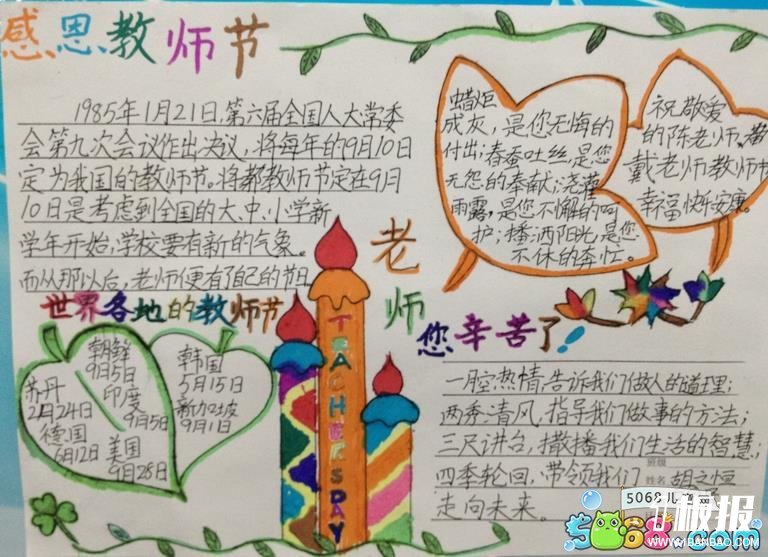 感恩教师节
1985年1月21日,第六届全国人大常委
会第九次会议作出决议,将每年的9月10日
定为我国的教师节。将都教师节定在9月
10日是考虑到全国的大、中、小学新
学年开始,学校要有新的气象。
而从那以后,老师便有了自己的节日
世界各地的教师节
朝鲜
9月5日
印度
9月5日
苏丹
2月24日
德国
6月12日
美国
9月28日
韩国
5月15日
新加坡
9月1日
TEACHERSDAY
蜡炬
成灰,是你无悔的
付出;春蚕吐丝,是您
无怨的奉献;浇灌
雨露,是您不懈的呵
护;播洒阳光,是您
不休的奔忙。
祝敬爱
的陈老师、
戴老师教师节
幸福快乐安康。
老师
您辛苦了!
一腔热情,告诉我们做人的道理;
两秀清风,指导我们做事的方法;
三尺讲台,撒播我们生活的智慧;
四季轮回,带领我们
走向未来。
班级
姓名 胡之恒
5068儿童网
5068.com
板报
WWW.BANBAO.COM